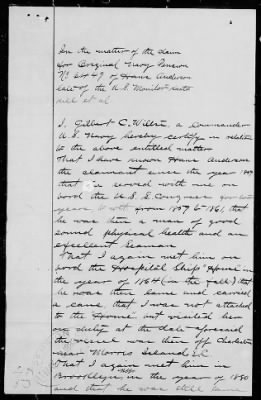 In the matter of the claim
for Original Navy Pension
No of Hans Anderson
late of the U.S. Monitor
et al
I, Gilbert C. Wiltse, a Commander
U.S. Navy hereby certify in relation
to the above entitled matter
That I have known Hans Anderson
the claimant since the year
that he served with me on
board the U.S.S. Congress for
years from 1859 to 1861 that
he was then a man of good
sound physical health and an
excellent Seaman
That I again met him on
board the Hospital Ship "Home" in
the year of 1864 (in the fall) that
he was then lame and carried
a cane, that I was not attached
to the Home but visited her
on duty at the date aforesaid
the vessel was then off Charleston
near Morris Island S.C.
That I again met him in
Brooklyn in the year of 1880
and that he was still lame